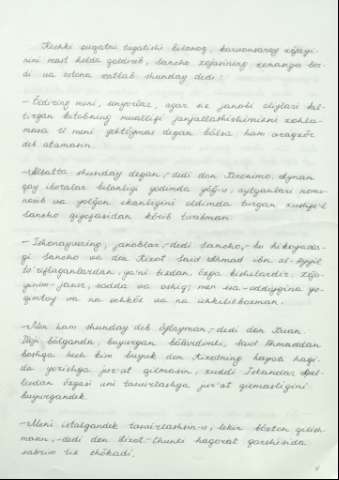 Kechki ovqatni tugatishi bilanoq, karvonsaroy xo'jayi-
nini mast holda qoldirib, Sancho xo'jasining xonasiga bor-
di va ostona xatlab shunday dedi:
– O'ldiring meni, sinyorlar, agar siz janobi oliylari kel-
tirgan kitobning muallifi janjallashishimizni xohla-
masa u meni yebto'ymas degan bo'lsa ham araqxo'r
deb atamasin.
– Albatta shunday degan, – dedi don Xeronimo. Aynan
qay iboralar bilanligi yodimda yo'g'-u, aytganlari nomu-
nosib va yolg'on ekanligini oldimda turgan xushfe'l
Sancho qiyofasidan ko'rib turibman.
– Ishonavering, janoblar, – dedi Sancho, – bu hikoyada-
gi Sancho va don Kixot Said Ahmad ibn al-Ayyil
ta'riflaganlardan, ya'ni bizdan o'zga kishilardir. Xo'ja-
yinim – jasur, sodda va oshiq; men esa – oddiygina qi-
ziqchi va na ochko'z va na ichkilikbozman.
– Men ham shunday deb o'ylayman, – dedi don Xuan.
Iloji bo'lganda, buyurgan bo'lardimki, Said Ahmaddan
boshqa hech kim buyuk don Kixotning hayoti haqi-
da yozishga jur'at qilmasin, xuddi Iskandar Apel-
lesdan o'zgasi uni tasvirlashga jur'at qilmasligini
buyurgandek.
– Meni istalgandek tasvirlashsin-u, lekin bo'hton qilish-
masin, – dedi don Kixot – Chunki haqorat qarshisida
sabrim tik cho'kadi.